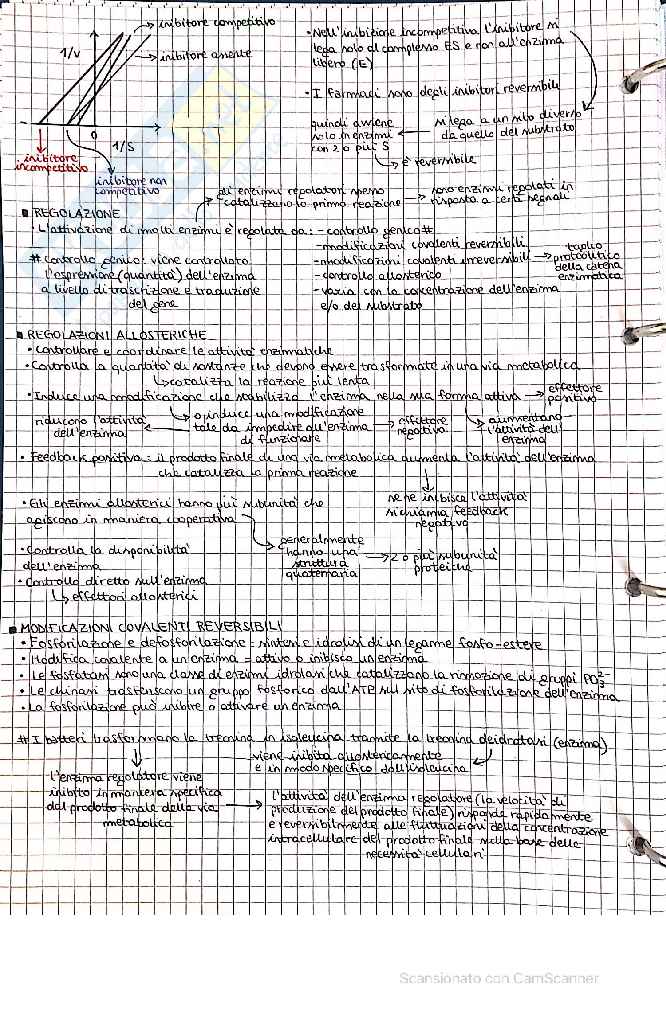 inibitore competitivo
1/v
inibitore assente
0
1/S
inibitore
incompetitivo
inibitore non
competitivo
• Nell'inibizione incompetitiva l'inibitore si
lega solo al complesso ES e non all'enzima
libero (E)
• I farmaci sono degli inibitori reversibili
si lega a un sito diverso
da quello del substrato
quindi avviene
solo in enzimi
con 2 o più S
è reversibile
gli enzimi regolatori spesso
catalizzano la prima reazione
sono enzimi regolati in
risposta a certi segnali
■ REGOLAZIONE
• L'attivazione di molti enzimi è regolata da: - controllo genico #
- modificazioni covalenti reversibili
- modificazioni covalenti irreversibili
taglio
proteolitico
della catena
enzimatica
- controllo allosterico
- varia con la concentrazione dell'enzima
e/o del substrato
# Controllo genico: viene controllato
l'espressione (quantità) dell'enzima
a livello di trascrizione e traduzione
del gene
■ REGOLAZIONI ALLOSTERICHE
• Controllare e coordinare le attività enzimatiche
• Controlla la quantità di sostanze che devono essere trasformate in una via metabolica
catalizza la reazione più lenta
• Induce una modificazione che stabilizza l'enzima nella sua forma attiva
effettore
positivo
o induce una modificazione
tale da impedire all'enzima
di funzionare
riducono l'attività
dell'enzima
effettore
negativo
aumentano
l'attività dell'
enzima
• Feedback positivo: il prodotto finale di una via metabolica aumenta l'attività dell'enzima
che catalizza la prima reazione
se ne inibisce l'attività
si chiama feedback
negativo
• Gli enzimi allosterici hanno più subunità che
agiscono in maniera cooperativa
generalmente
hanno una
struttura
quaternaria
2 o più subunità
proteiche
• Controlla la disponibilità
dell'enzima
• Controllo diretto sull'enzima
effettori allosterici
■ MODIFICAZIONI COVALENTI REVERSIBILI
• Fosforilazione e defosforilazione: sintesi e idrolisi di un legame fosfo-estere
• Modifica covalente a un enzima = attivo o inibisco un enzima
• Le fosfatasi sono una classe di enzimi idrolasi che catalizzano la rimozione di gruppi PO₃²⁻
• Le chinasi trasferiscono un gruppo fosforico dall'ATP sul sito di fosforilazione dell'enzima
• La fosforilazione può inibire o attivare un enzima
# I batteri trasformano la treonina in isoleucina tramite la treonina deidratasi (enzima)
viene inibita allostericamente
e in modo specifico dall'isoleucina
l'enzima regolatore viene
inibito in maniera specifica
dal prodotto finale della via
metabolica
l'attività dell'enzima regolatore (la velocità di
produzione del prodotto finale) risponde rapidamente
e reversibilmente alle fluttuazioni della concentrazione
intracellulare del prodotto finale sulla base delle
necessità cellulari
Scansionato con CamScanner